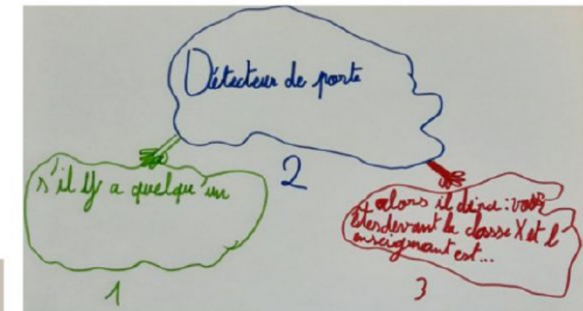 Détecteur de porte
s'il y a quelqu'un
2
alors il dira : vous
êtes devant la classe X et l'
enseignant est...
1
3